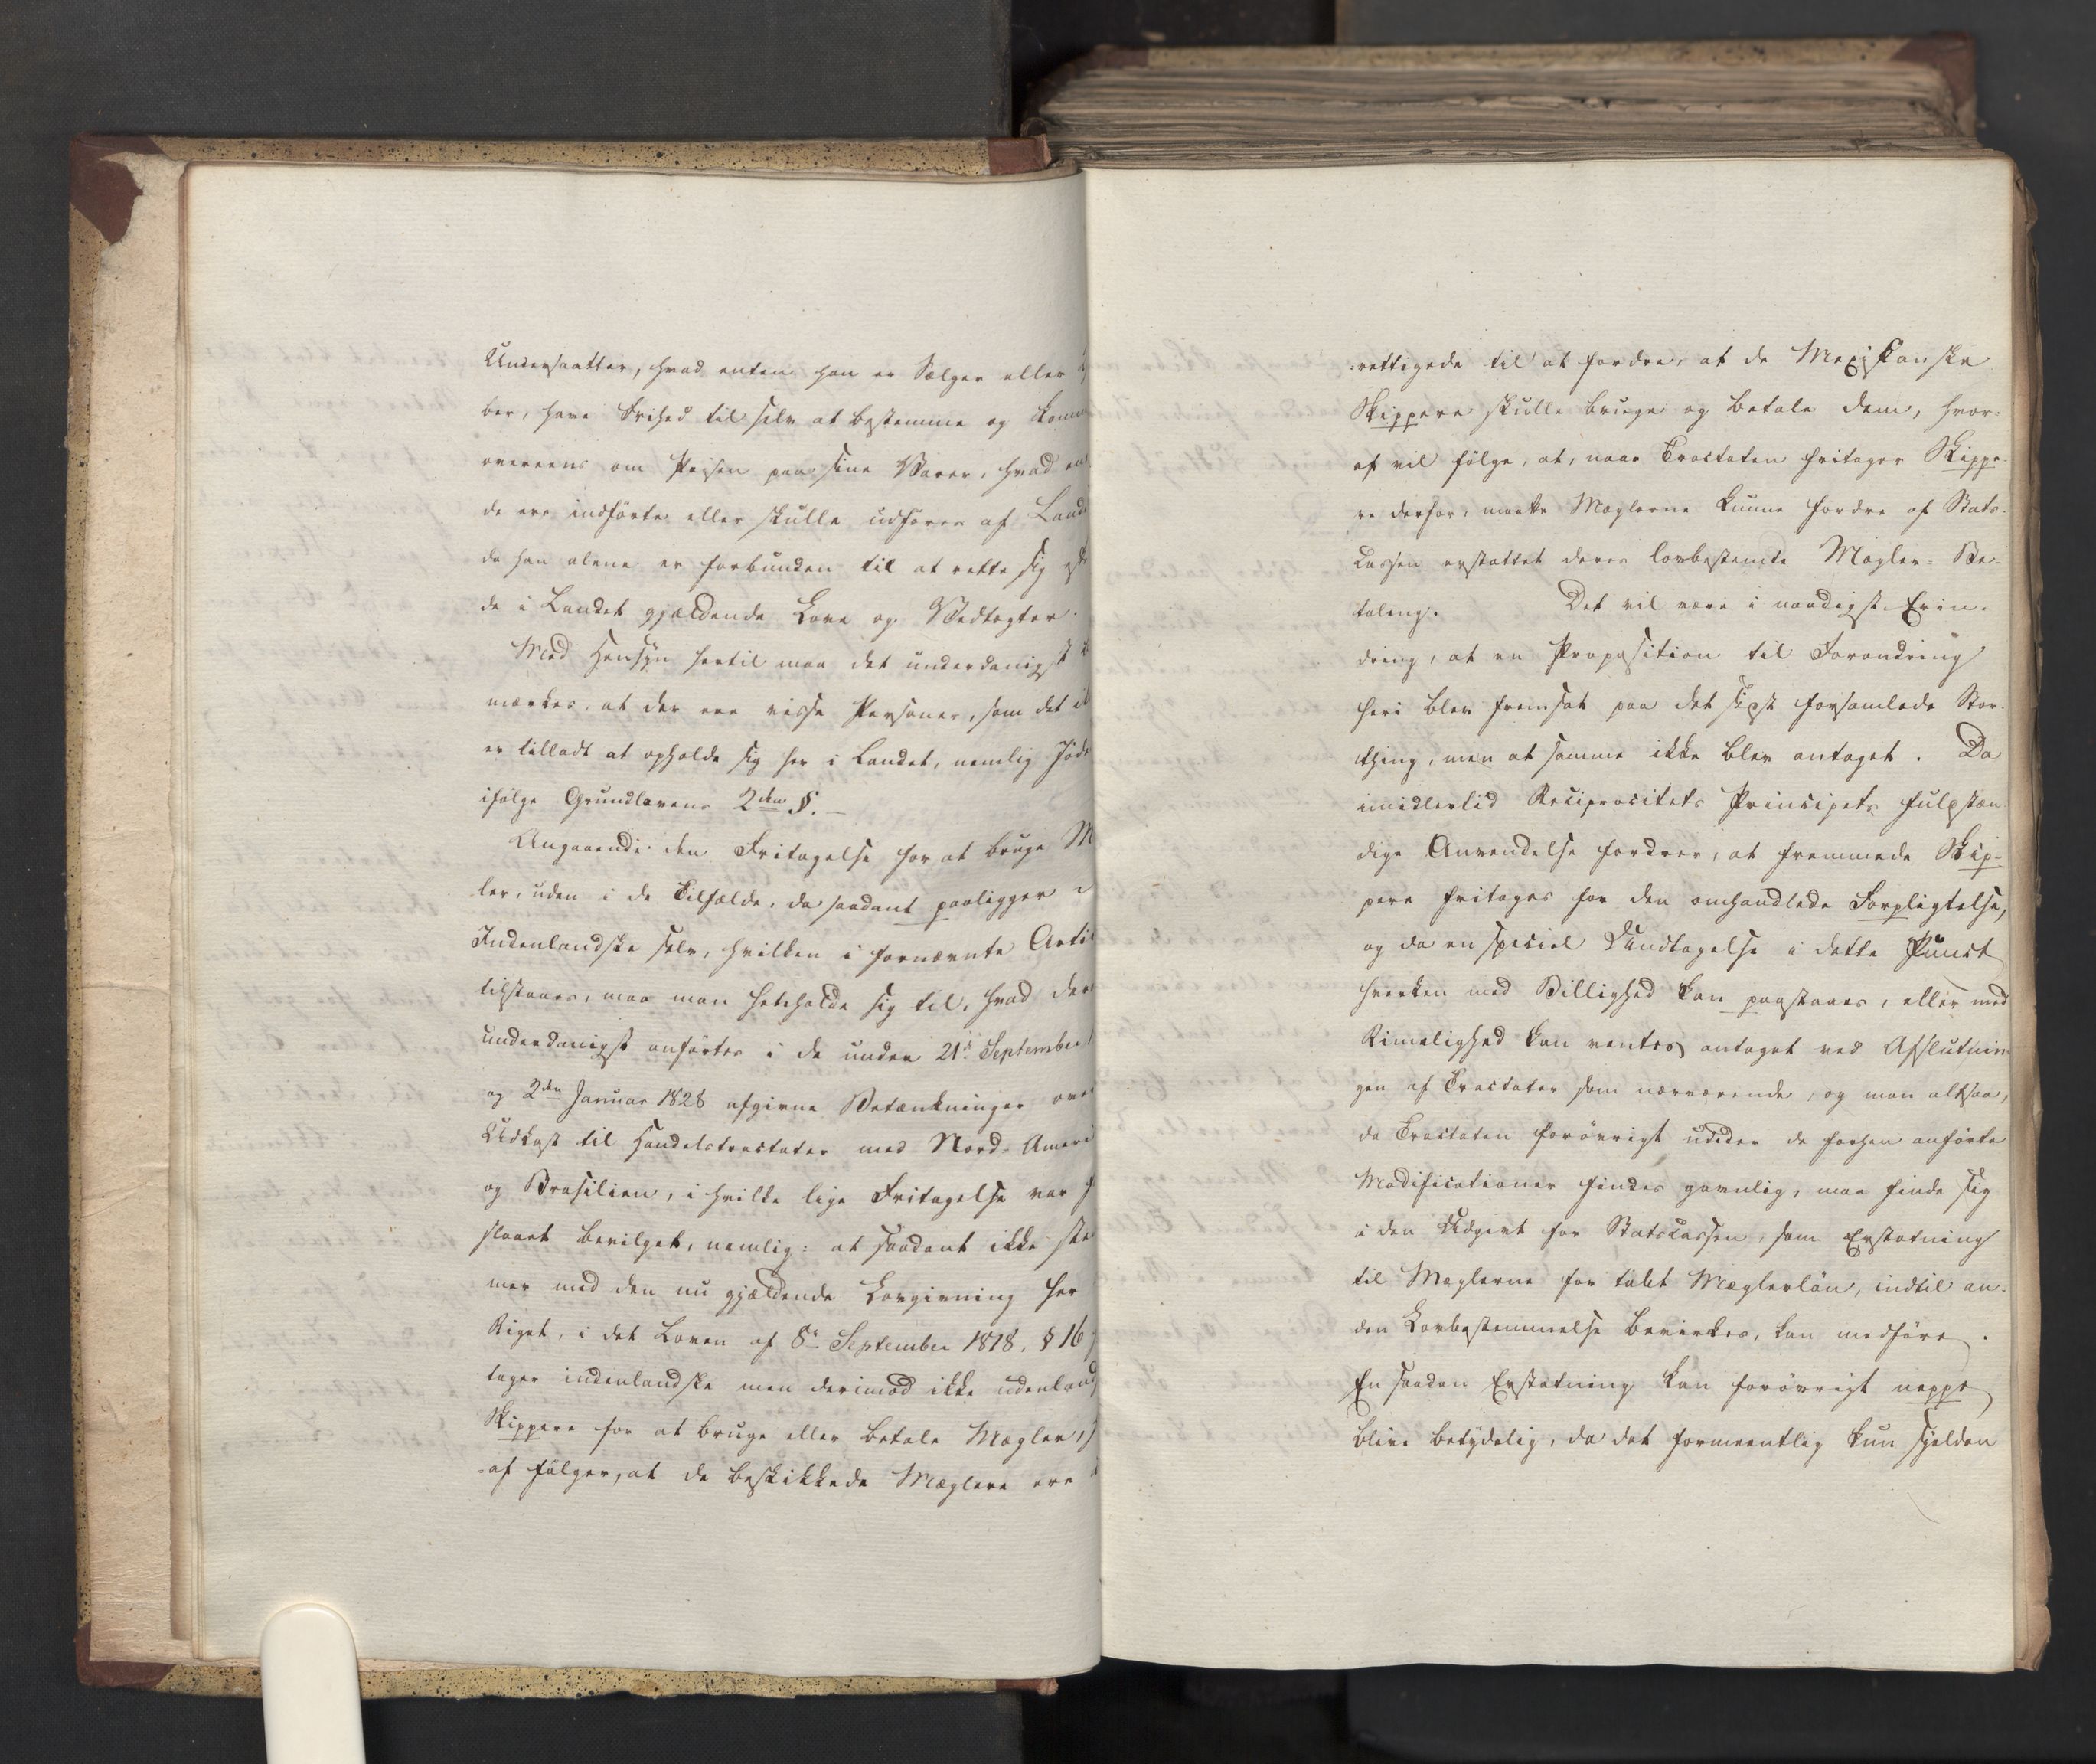 Undersaatter, hvad enten han er Sælger eller
ber, have Frihed til selv at bestemme og komme
overeens om Prisen paa sine Varer, hvad en
de ere indførte eller skulle udføres af Lande
da han alene er forbunden til at rette sig eft
de i Landet gjældende Love og Vedtægter.
Med Hensyn hertil maa det underdanigst
mærkes, at der ere visse Personer, som det ik
er tilladt at opholde sig her i Landet, nemlig Jöde
ifölge Grundlovens 2den §. —
Angaaende den Fritagelse for at bruge M
ler, uden i de Tilfælde, da saadant paaligger
Indenlandske selv, hvilken i fornævnte Arti
tilstaaes, maa man henholde sig til, hvad der
underdanigst anførtes i de under 21de September
og 2den Januar 1828 afgivne Betænkninger over
Udkast til Handelstractater med Nord-Ameri
og Brasilien, i hvilke lige Fritagelse var
slaaet bevilget, nemlig: at saadant ikke stem
mer med den nu gjældende Lovgivning her
Riget, i det Loven af 8de September 1818, § 16
tager indenlandske men derimod ikke udenland
Skippere for at bruge eller betale Mægler,
af fölger, at de beskikkede Mæglere ere
rettigede til at fordre, at de Mexikanske
Skippere skulle bruge og betale dem, hvor-
af vil fölge, at, naar Tractaten fritager Skippe-
re derfor, maatte Mæglerne kunne fordre af Stats-
Cassen erstattet deres lovbestemte Mægler-Be-
taling. Det vil være i naadigst Erin-
dring, at en Proposition til Forandring
heri blev fremsat paa det sidst forsamlede Stor-
thing, men at samme ikke blev antaget. Da
imidlertid Reciprocitets Principets fulstæn
dige Anvendelse fordrer, at fremmede Skip-
pere fritages for den omhandlede Forpligtelse,
og da en speciel Undtagelse i dette Punct
hverken med Billighed kan paastaaes, eller med
Rimelighed kan ventes antaget ved Afslutnin
gen af Tractater som nærværende, og man altsaa,
da Tractaten forövrigt under de forhen anförte
Modificationer findes gavnlig, maa finde sig
i den Udgivt for Statscassen, som Erstatning
til Mæglerne for tabt Mæglerlön, indtil an-
den Lovbestemmelse bevirkes, kan medföre.
En saadan Erstatning kan forövrigt neppe
blive betydelig, da det formeentlig kun sjelden